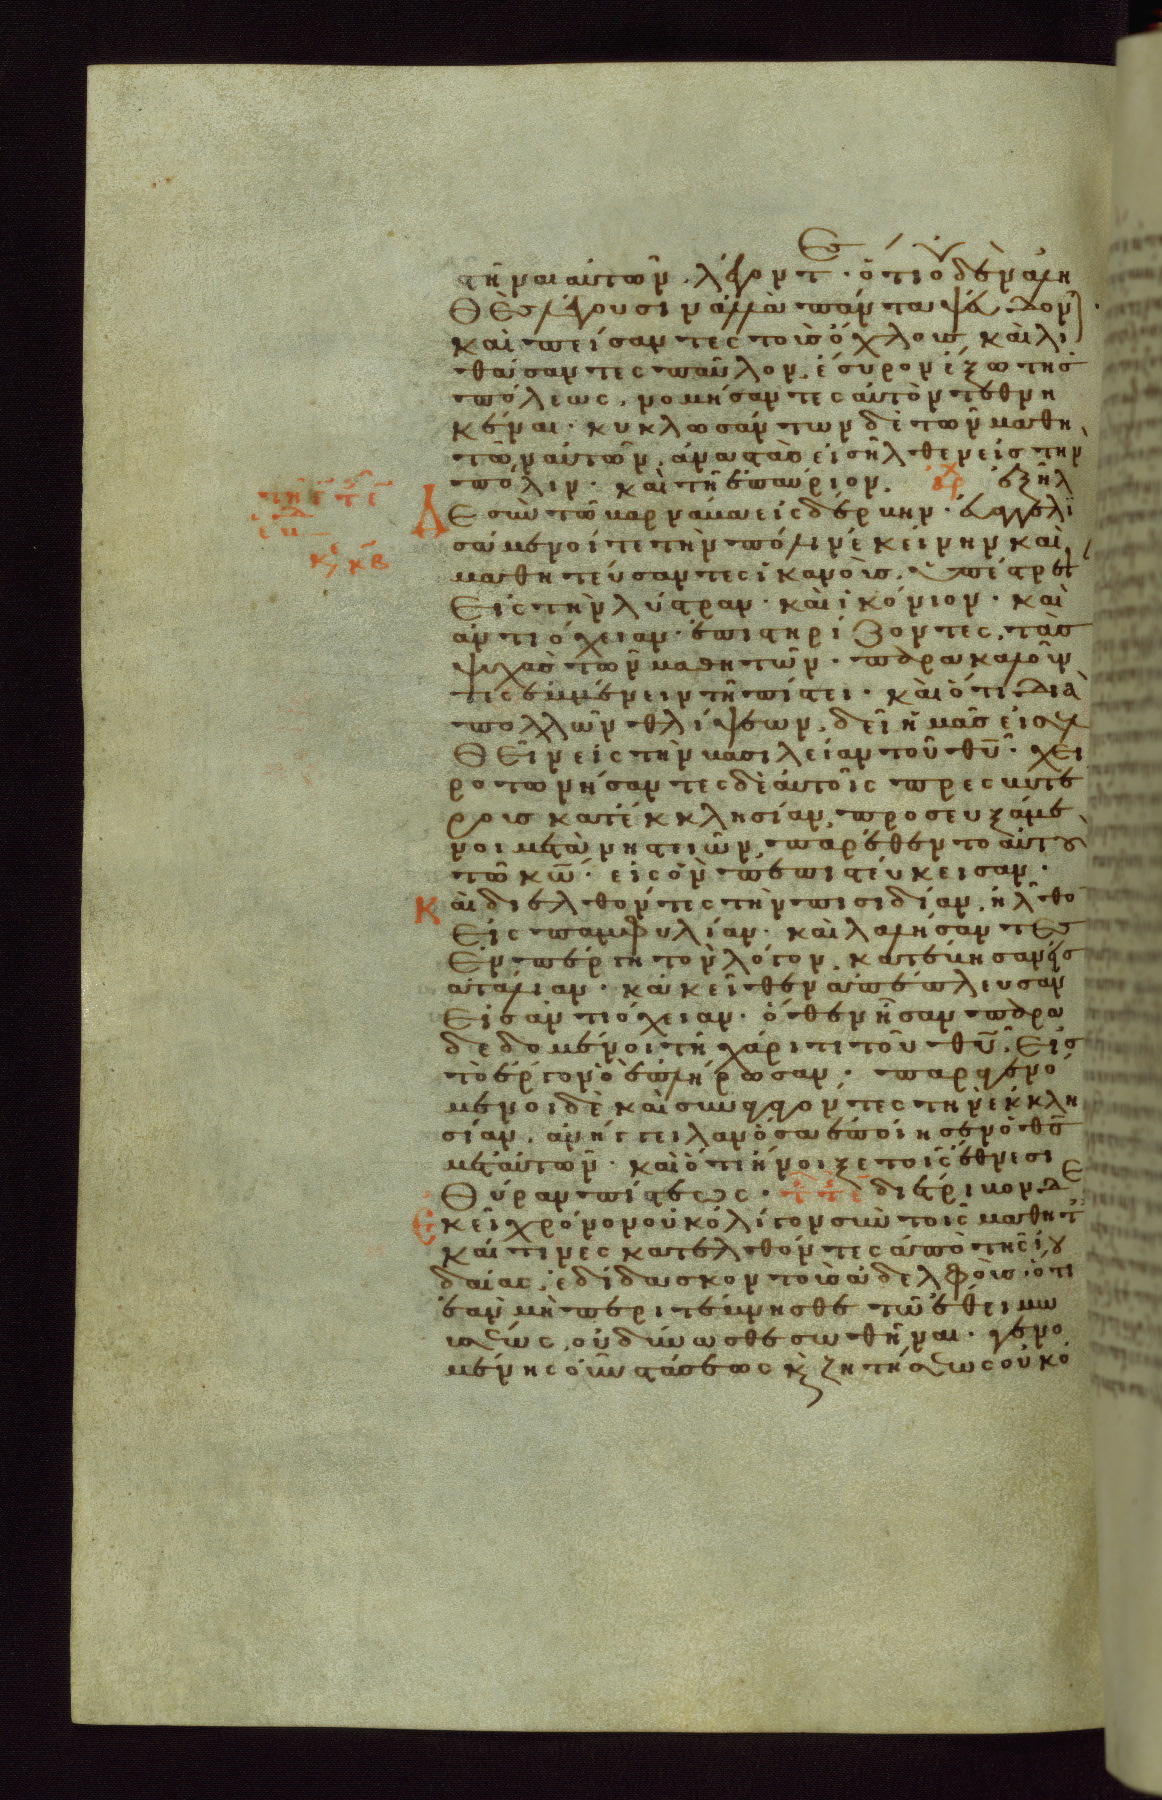 στῆναι αὐτῶν. λέγοντες· ὅτι οὐδὲν ἀλη
θὲς λέγουσιν ἀλλὰ πάντα ψεύδον(ται)·
καὶ πείσαντες τοὺς ὄχλους, καὶ λι
θάσαντες παῦλον, ἔσυρον ἔξω τῆς
πόλεως, νομήσαντες αὐτὸν τεθνη
κέναι· κυκλωσάντων δὲ τῶν μαθη
τῶν αὐτῶν, ἀναστὰς εἰσῆλθεν εἰς τὴν
πόλιν· καὶ τῇ ἐπαύριον, ἐξῆλ
θε σὺν τῶ βαρνάβα εἰς δέρβην· εὐαγγελι
σάμενοί τε τὴν πόλιν ἐκείνην καὶ
μαθητεύσαντες ἱκανοὺς, ὑπέστρεψαν
εἰς τὴν λύστραν· καὶ ἰκόνιον· καὶ
ἀντιόχειαν· ἐπιστηρίζοντες, τὰς
ψυχὰς τῶν μαθητῶν· παρακαλοῦν
τες ἐμμένειν τῇ πίστει· καὶ ὅτι διὰ
πολλῶν θλίψεων, δεῖ ἡμᾶς εἰσελ
θεῖν εἰς τὴν βασιλείαν τοῦ θυ̅· χει
ροτωνήσαντες δὲ αὐτοῖς πρεσβυτέ
ρους κατ' ἐκκλησίαν, προσευξάμε
νοι μετὰ νηστειῶν, παρέθεντο αὐτοὺς
τῶ κω̅· εἰς ὃν πεπιστεύκεισαν·
Καὶ διελθόντες τὴν πισιδίαν, ἦλθο(ν)
εἰς παμφυλίαν· καὶ λαλήσαντες
ἐν πέργη τὸν λόγον, κατέβησαν εἰς
ἀτάλιαν· κἀκεῖθεν ἀπέπλευσαν
εἰς ἀντιόχειαν· ὅθεν ἦσαν παρα
δεδομένοι τῇ χάριτι τοῦ θυ̅· εἰς
τὸ ἔργον ὃ ἐπλήρωσαν· παραγενό
μενοι δὲ καὶ συναγαγόντες τὴν ἐκκλη
σίαν, ἀνήγγειλαν ὅσα ἐποίησεν ὁ θς̅
μετ' αὐτῶν· καὶ ὅτι ἤνοιξε τοῖς ἔθνεσι
θύραν πίστεως· διέτριβον δὲ
ἐκεῖ χρόνον οὐκ ὀλίγον σὺν τοῖς μαθητ(αῖς)
καί τινες κατελθόντες ἀπὸ τῆς ἰου
δαίας, ἐδίδασκον τοὺς ἀδελφοὺς· ὅτι
ἐὰν μὴ περιτέμνησθε τῶ ἔθει μω
υσέως, οὐ δύνασθε σωθῆναι· γενο
μένης οὖν στάσεως κ(αὶ) ζητήσεως οὐκ ὀ